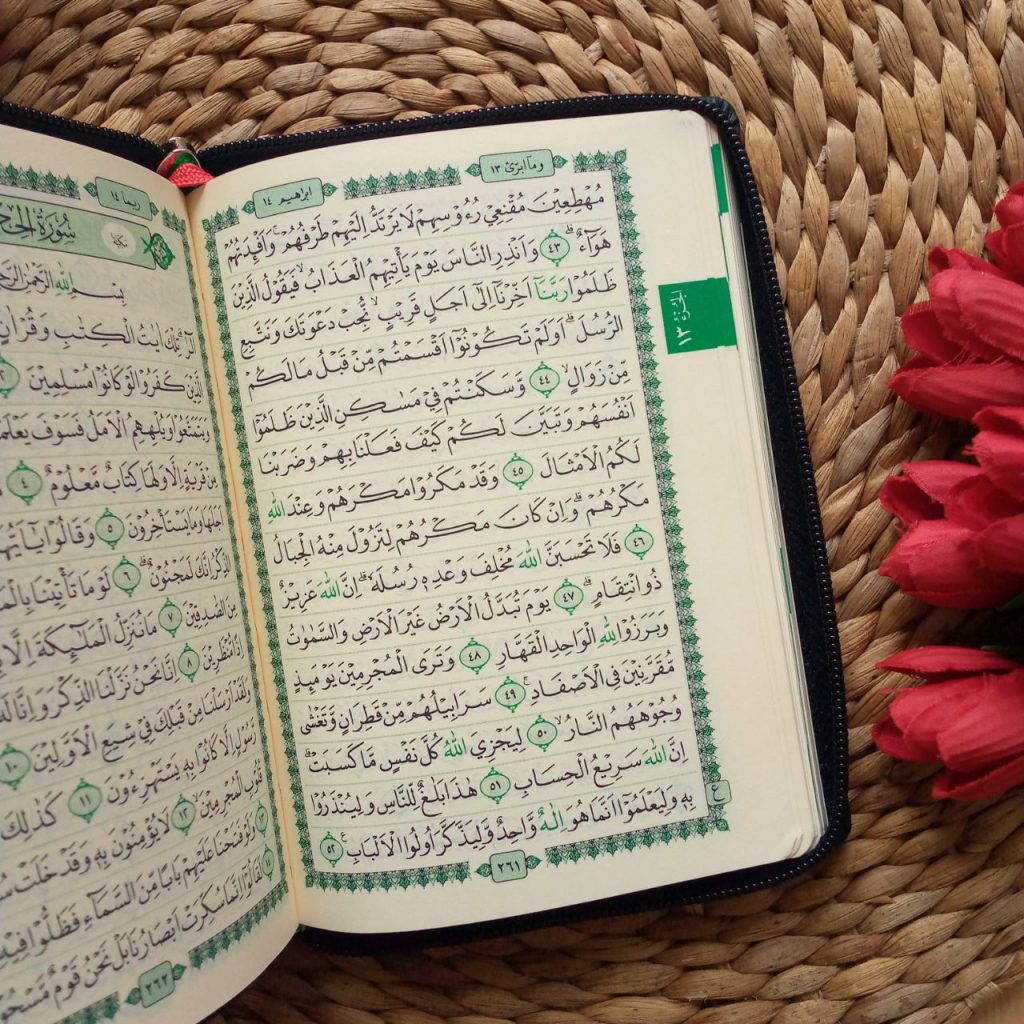 وما ابرئ ١٣
ابراهيم ١٤
مُهْطِعِيْنَ مُقْنِعِيْ رُءُوْسِهِمْ لَا يَرْتَدُّ اِلَيْهِمْ طَرْفُهُمْ ۚ وَاَفْـِٕدَتُهُمْ
هَوَاۤءٌ ۗ ٤٣ وَاَنْذِرِ النَّاسَ يَوْمَ يَأْتِيْهِمُ الْعَذَابُۙ فَيَقُوْلُ الَّذِيْنَ
ظَلَمُوْا رَبَّنَآ اَخِّرْنَآ اِلٰٓى اَجَلٍ قَرِيْبٍۙ نُّجِبْ دَعْوَتَكَ وَنَتَّبِعِ
الرُّسُلَ ۗ اَوَلَمْ تَكُوْنُوْٓا اَقْسَمْتُمْ مِّنْ قَبْلُ مَا لَكُمْ
مِّنْ زَوَالٍۙ ٤٤ وَّسَكَنْتُمْ فِيْ مَسٰكِنِ الَّذِيْنَ ظَلَمُوْٓا
اَنْفُسَهُمْ وَتَبَيَّنَ لَكُمْ كَيْفَ فَعَلْنَا بِهِمْ وَضَرَبْنَا
لَكُمُ الْاَمْثَالَ ٤٥ وَقَدْ مَكَرُوْا مَكْرَهُمْ وَعِنْدَ اللّٰهِ
مَكْرُهُمْ ۗ وَاِنْ كَانَ مَكْرُهُمْ لِتَزُوْلَ مِنْهُ الْجِبَالُ
٤٦ فَلَا تَحْسَبَنَّ اللّٰهَ مُخْلِفَ وَعْدِهٖ رُسُلَهٗ ۗ اِنَّ اللّٰهَ عَزِيْزٌ
ذُو انْتِقَامٍ ۗ ٤٧ يَوْمَ تُبَدَّلُ الْاَرْضُ غَيْرَ الْاَرْضِ وَالسَّمٰوٰتُ
وَبَرَزُوْا لِلّٰهِ الْوَاحِدِ الْقَهَّارِ ٤٨ وَتَرَى الْمُجْرِمِيْنَ يَوْمَىِٕذٍ
مُّقَرَّنِيْنَ فِى الْاَصْفَادِۚ ٤٩ سَرَابِيْلُهُمْ مِّنْ قَطِرَانٍ وَّتَغْشٰى
وُجُوْهَهُمُ النَّارُۙ ٥٠ لِيَجْزِيَ اللّٰهُ كُلَّ نَفْسٍ مَّا كَسَبَتْ ۗ
اِنَّ اللّٰهَ سَرِيْعُ الْحِسَابِ ٥١ هٰذَا بَلٰغٌ لِّلنَّاسِ وَلِيُنْذَرُوْا
بِهٖ وَلِيَعْلَمُوْٓا اَنَّمَا هُوَ اِلٰهٌ وَّاحِدٌ وَّلِيَذَّكَّرَ اُولُوا الْاَلْبَابِ ࣖ ٥٢
ع
٢٦١
الجزء ١٣
ربما ١٤
سُوْرَةُ الْحِجْ
مكية
بِسْمِ اللّٰهِ الرَّحْمٰنِ الرَّ
الۤرٰ ۗ تِلْكَ اٰيٰتُ الْكِتٰبِ وَقُرْاٰنٍ
الَّذِيْنَ كَفَرُوْا لَوْ كَانُوْا مُسْلِمِيْنَ ٢
وَيَتَمَتَّعُوْا وَيُلْهِهِمُ الْاَمَلُ فَسَوْفَ يَعْلَمُ
مِنْ قَرْيَةٍ اِلَّا وَلَهَا كِتَابٌ مَّعْلُوْمٌ ٤
اَجَلَهَا وَمَا يَسْتَأْخِرُوْنَ ٥ وَقَالُوْا يٰٓاَيُّهَ
الذِّكْرُ اِنَّكَ لَمَجْنُوْنٌ ۗ ٦ لَوْ مَا تَأْتِيْنَا بِالْمَ
مِنَ الصّٰدِقِيْنَ ٧ مَا نُنَزِّلُ الْمَلٰۤىِٕكَةَ اِلَّا
اِذًا مُّنْظَرِيْنَ ٨ اِنَّا نَحْنُ نَزَّلْنَا الذِّكْرَ وَاِنَّا لَ
وَلَقَدْ اَرْسَلْنَا مِنْ قَبْلِكَ فِيْ شِيَعِ الْاَوَّلِيْنَ ١٠
رَّسُوْلٍ اِلَّا كَانُوْا بِهٖ يَسْتَهْزِءُوْنَ ١١ كَذٰلِكَ
قُلُوْبِ الْمُجْرِمِيْنَۙ ١٢ لَا يُؤْمِنُوْنَ بِهٖ وَقَدْ خَلَتْ سُ
١٣ وَلَوْ فَتَحْنَا عَلَيْهِمْ بَابًا مِّنَ السَّمَاۤءِ فَظَلُّوْا فِيْهِ
١٤ لَقَالُوْٓا اِنَّمَا سُكِّرَتْ اَبْصَارُنَا بَلْ نَحْنُ قَوْمٌ مَّسْحُوْ
٢٦٢